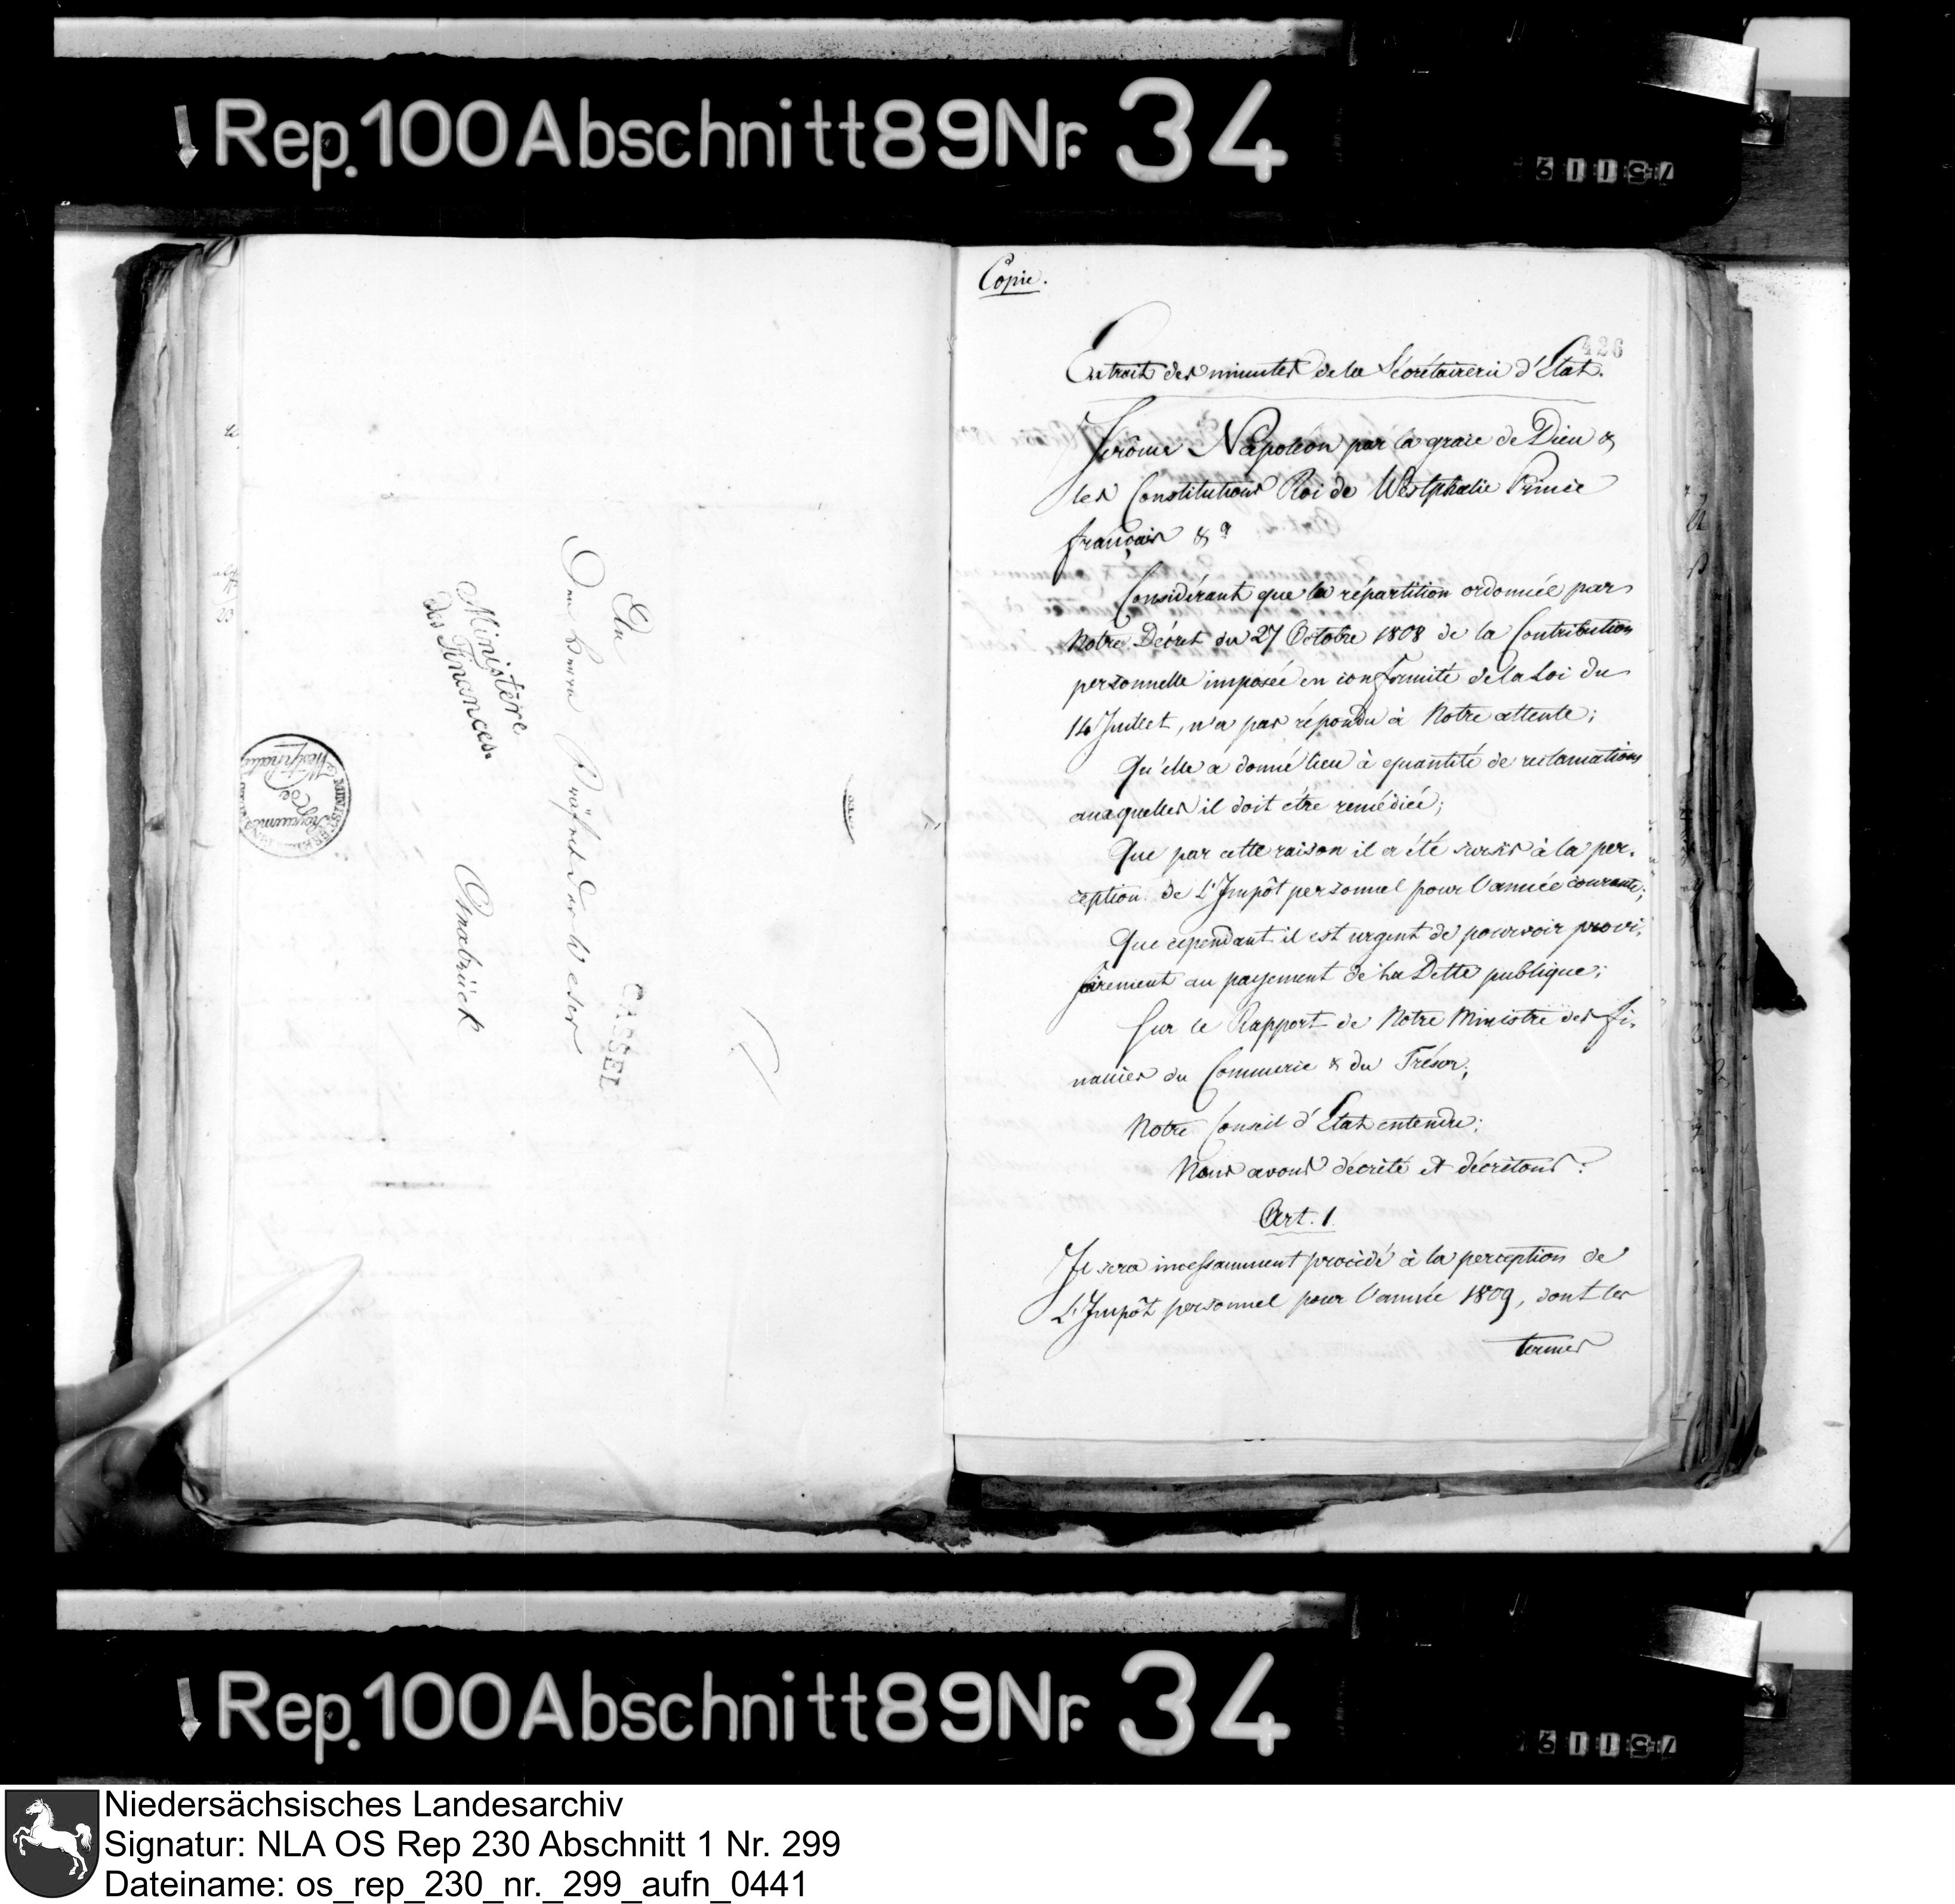 Rep. 100 Abschnitt 89 Nr. 34
An
Den Herrn Präfect der Weser
Ministère
des Finances.
Osnabrück
CASSEL
Royaume
de
Westphalie
Copie.
426
Extrait des minutes de la Sécrétairerie d'Etat.
Jérôme Napoléon par la grace de Dieu &
les Constitutions Roi de Westphalie Prince
français &a
Considérant que la répartition ordonnée par
Notre Décret du 27 Octobre 1808 de la Contribution
personnelle imposée en conformité de la Loi du
14 Juillet, n'a pas répondu à Notre attente;
Qu'elle a donné lieu à quantité de reclamations
auxquelles il doit être remédiée;
Que par cette raison il a été sursis à la per-
ception de L'Impôt personnel pour l'année courante;
Que cependant il est urgent de pourvoir provi-
soirement au payement de La Dette publique;
Sur le Rapport de Notre Ministre des fi-
nances du Commerce & du Trésor;
Notre Conseil d'Etat entendu;
Nous avons décrété et décrétons:
Art. 1
Il sera incessamment procédé à la perception de
L'Impôt personnel pour l'année 1809, dont les
termes
Rep. 100 Abschnitt 89 Nr. 34
Niedersächsisches Landesarchiv
Signatur: NLA OS Rep 230 Abschnitt 1 Nr. 299
Dateiname: os_rep_230_nr._299_aufn_0441